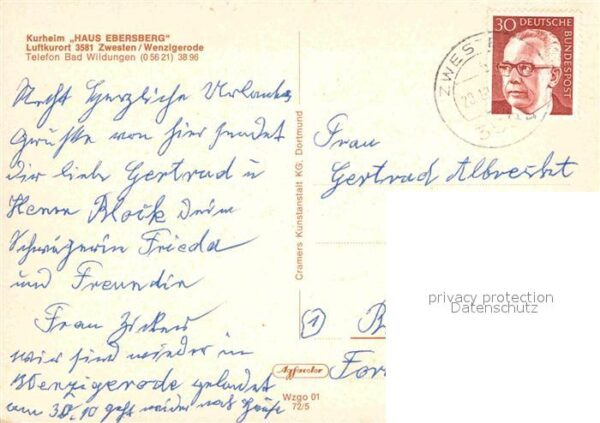 Kurheim „HAUS EBERSBERG"
Luftkurort 3581 Zwesten/Wenzigerode
Telefon Bad Wildungen (0 56 21) 38 96
Recht Herzliche Urlaubs
Grüße von hier sendet
dir liebe Gertrud u
Herrn Block Deine
Schwägerin Frieda
und Freundin
Frau
wir sind wieder in
Wenzigerode gelandet
am 30.10 geht wieder nach Hause
Cramers Kunstanstalt KG, Dortmund
Agfacolor
Wzgo 01
72/5
30 DEUTSCHE
BUNDESPOST
ZWES
Frau
Gertrud Albrecht
1
B
For
privacy protection
Datenschutz